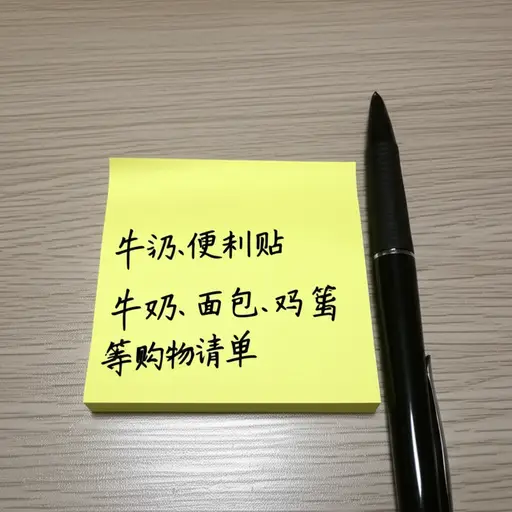 牛奶、便利贴
牛奶、面包、鸡蛋
等购物请单